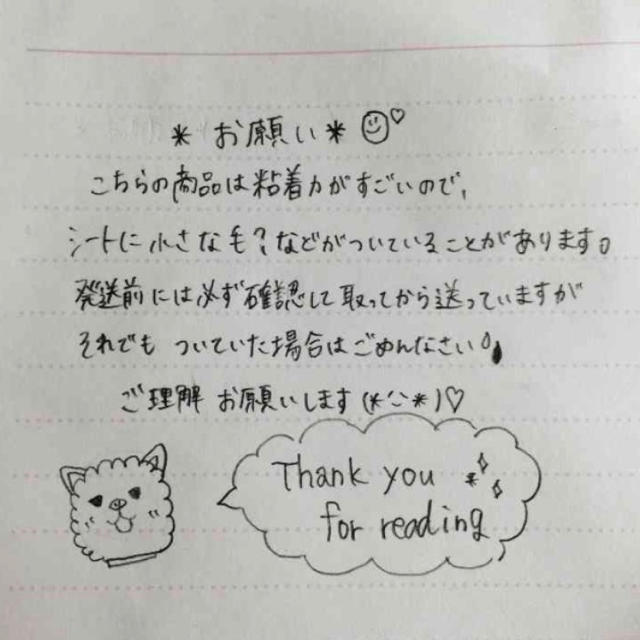 * お願い * ♡
こちらの商品は粘着力がすごいので、
シートに小さな毛?などがついていることがあります。
発送前には必ず確認して取ってから送っていますが
それでも ついていた場合はごめんなさい
ご理解 お願いします(*^^*)♡
Thank you
for reading